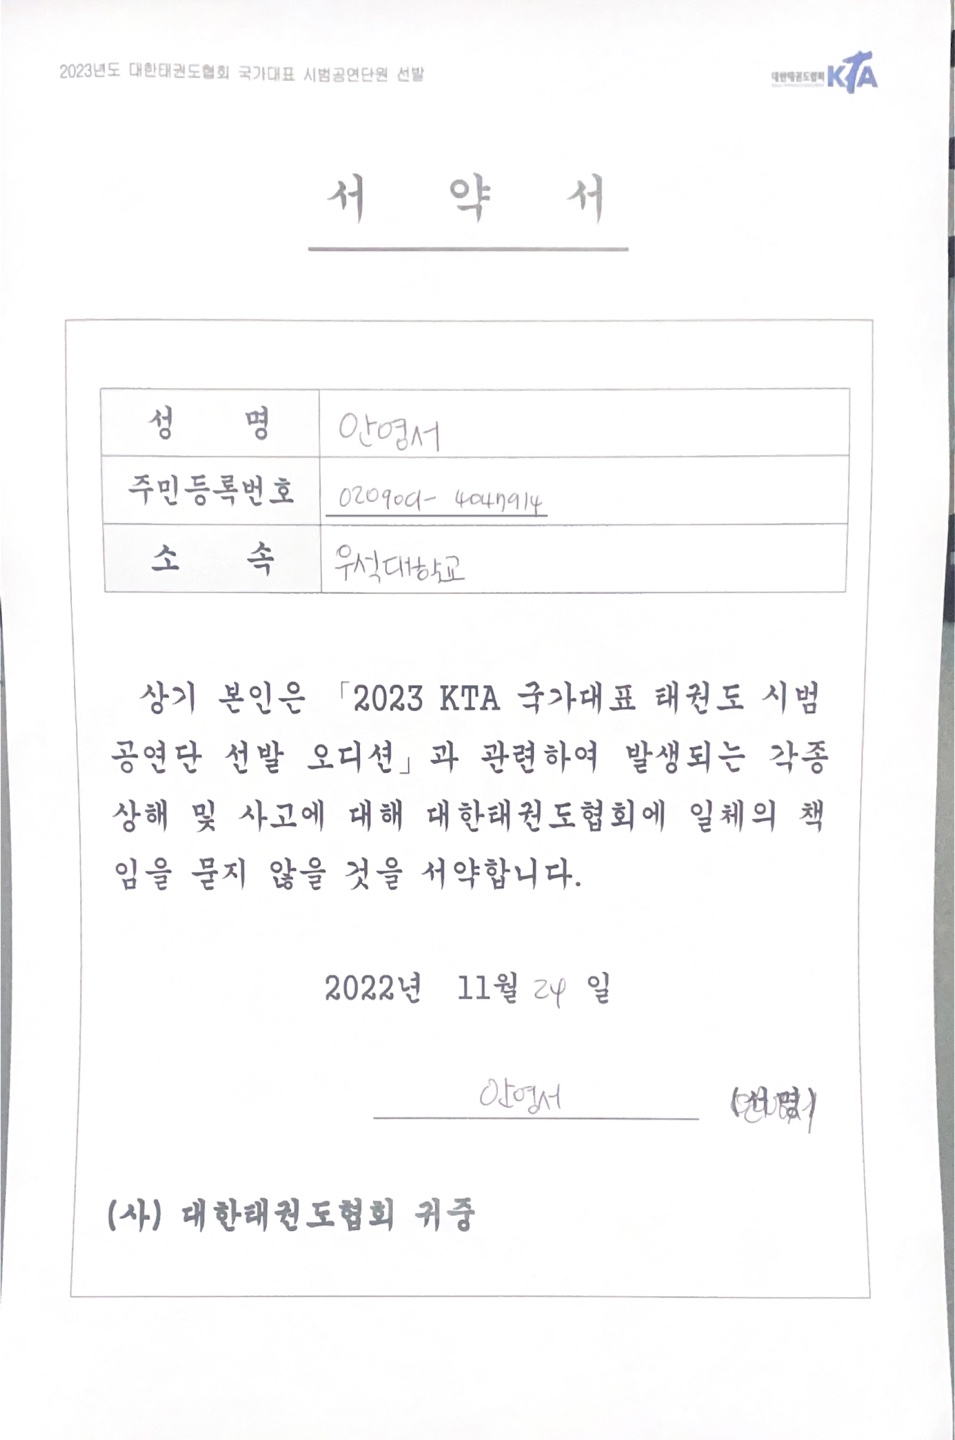 2023년도 대한태권도협회 국가대표 시범공연단원 선발
대한태권도협회 KTA
서 약 서
성 명 안영서
주민등록번호 020909- 4047914
소 속 우석대학교
상기 본인은 「2023 KTA 국가대표 태권도 시범
공연단 선발 오디션」과 관련하여 발생되는 각종
상해 및 사고에 대해 대한태권도협회에 일체의 책
임을 묻지 않을 것을 서약합니다.
2022년 11월 24 일
안영서 (서명)
(사) 대한태권도협회 귀중